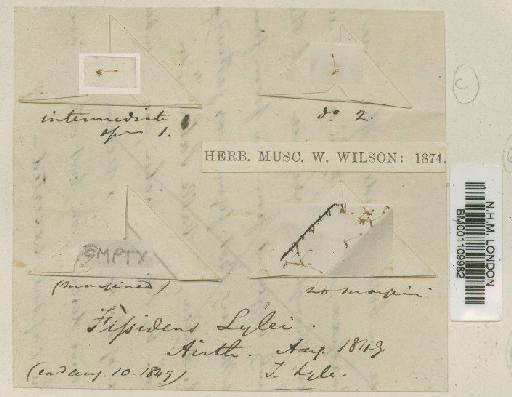 intermediate
1.
do 2.
HERB. MUSC. W. WILSON: 1874.
EMPTY
(margined)
no margin
Fissidens Lylei.
Airth. Aug. 1849
(end Aug. 10. 1849) T. Lyle.
C
N.H.M. LONDON
BM001109982